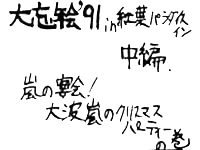 大忘絵'91 in 紅葉パラダイス
イン
中編.
嵐の宴会!
大波嵐のクリスマス
パーティー
の巻